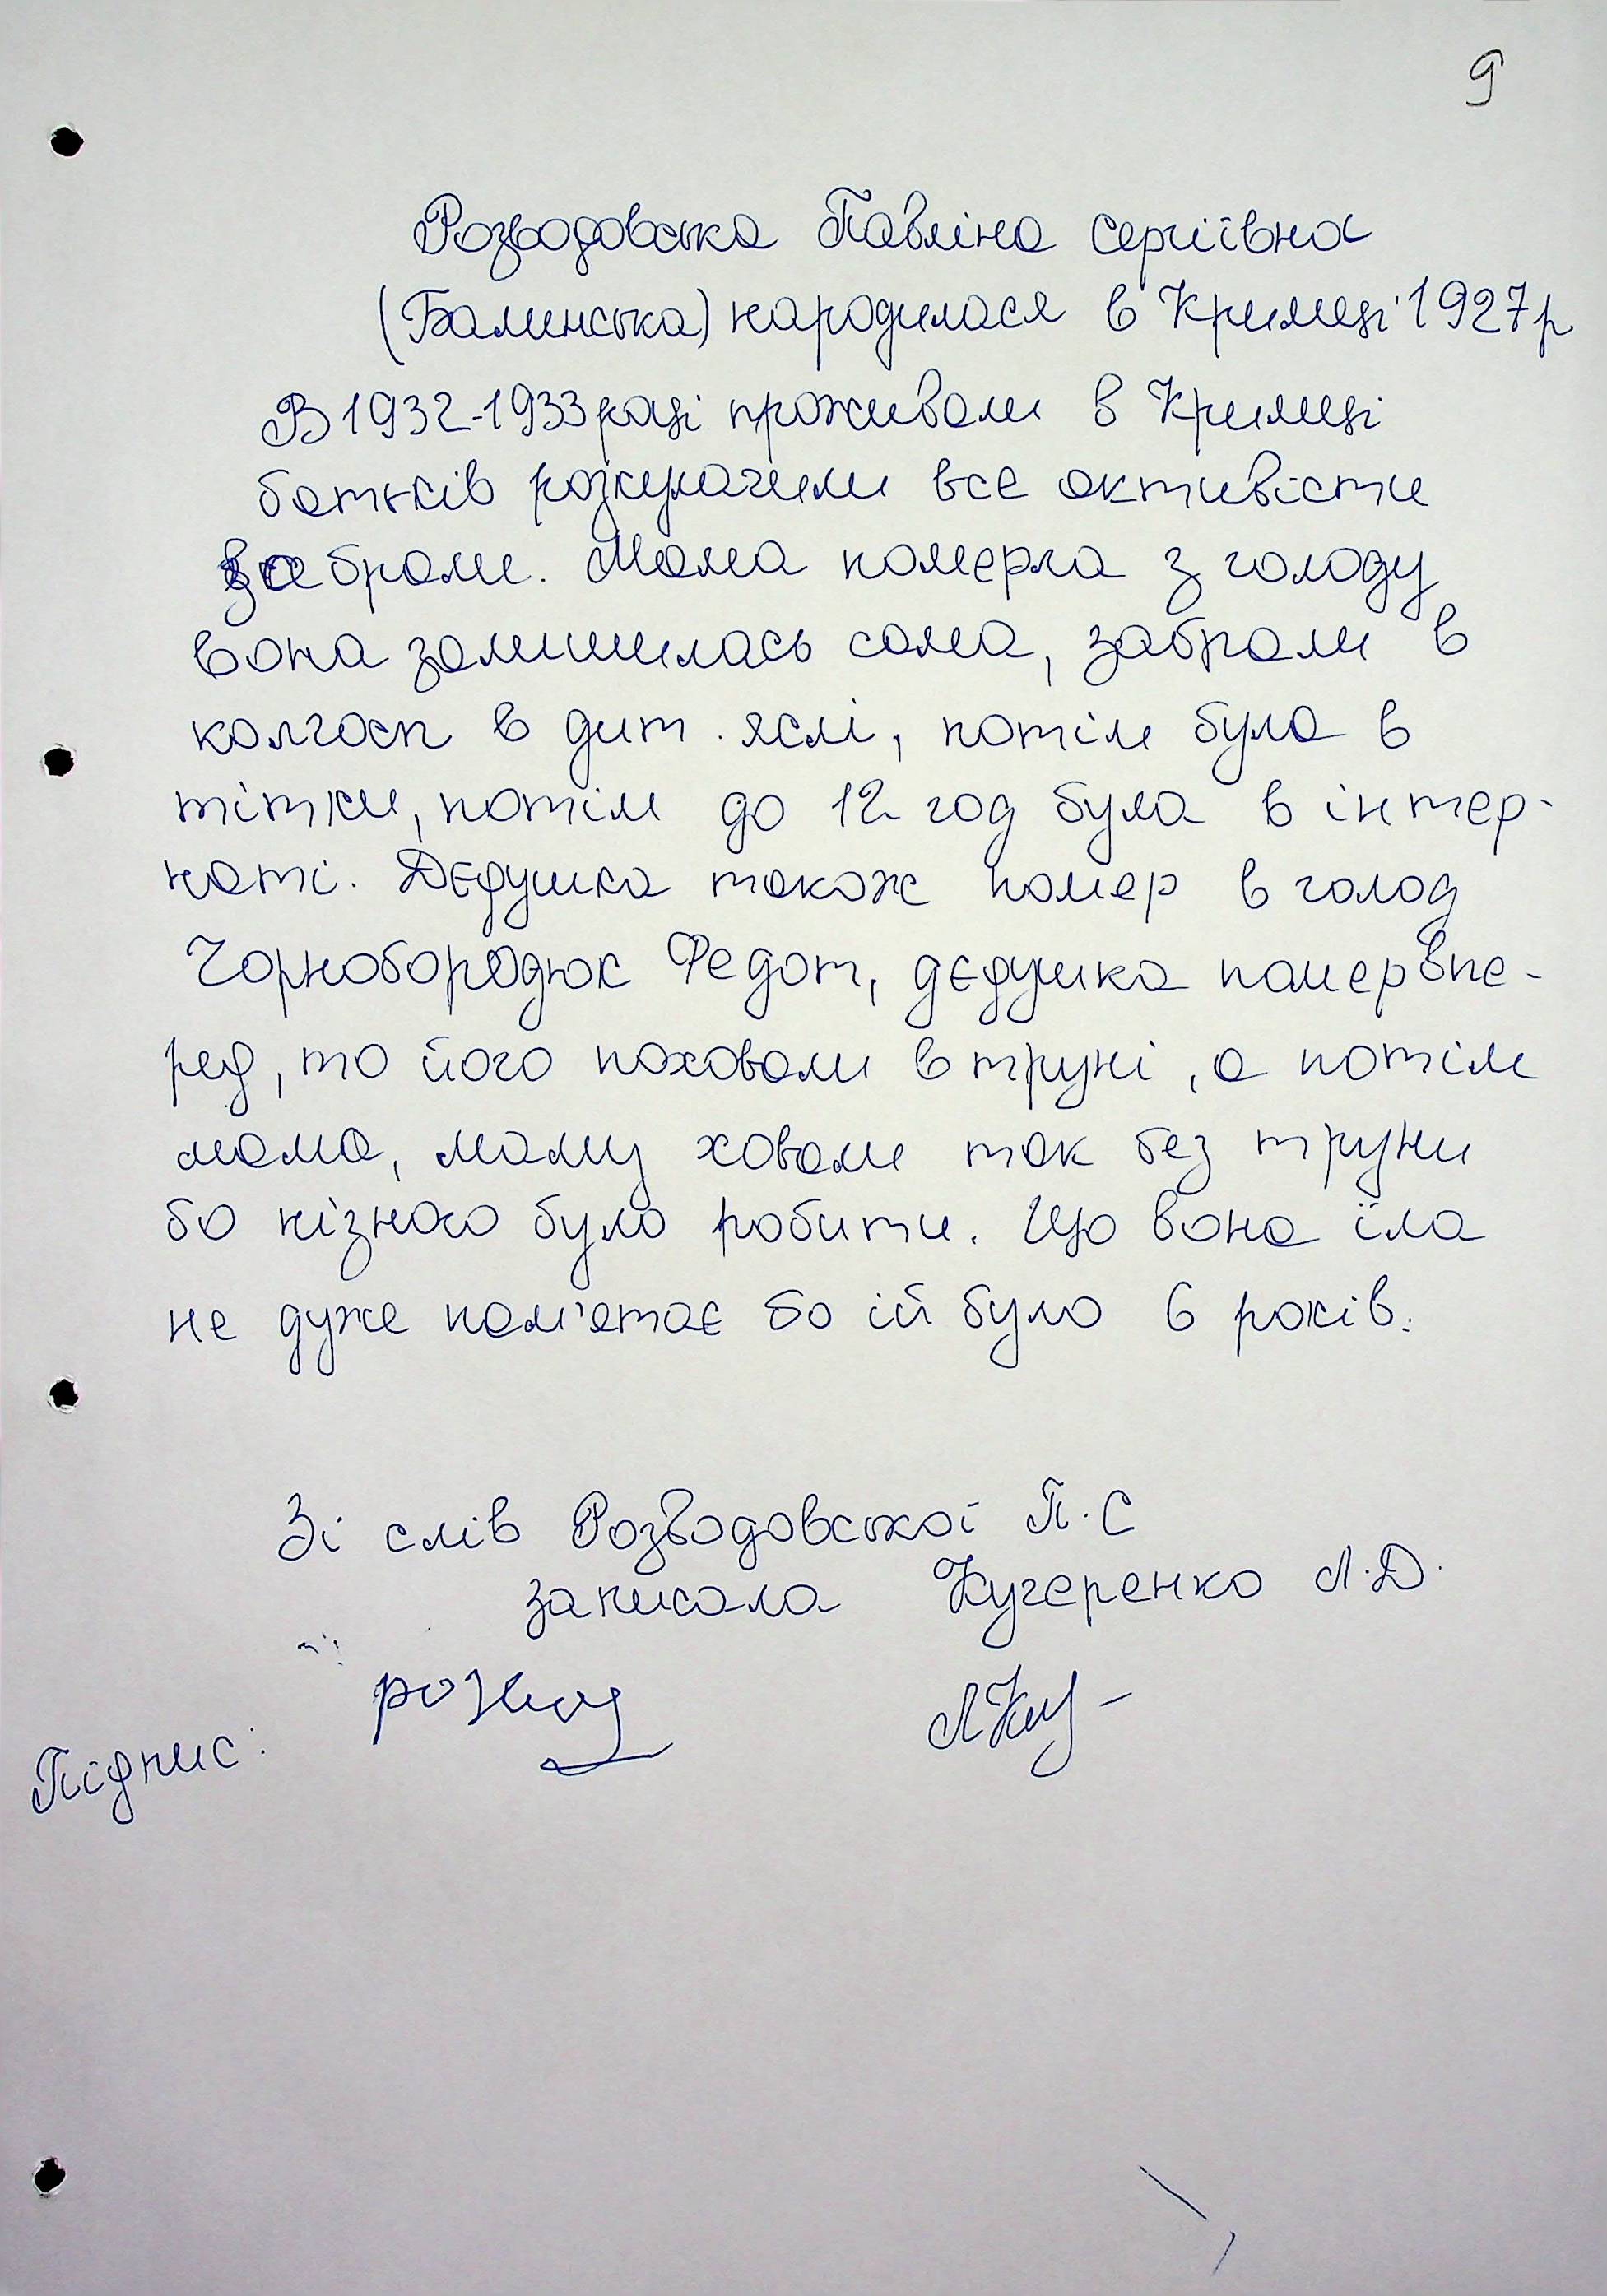 9
Розводовська Павліна Сергіївна
(Балинська) народилася в Крилеці 1927р
В 1932-1933 році проживали в Крилеці
батьків розкулачили все активісти
забрали. Мама померла з голоду
вона залишилась сама, забрали в
колгосп в дит. яслі, потім була в
тітки, потім до 12 год була в інтер-
наті. Дєдушка також помер в голод
Чорнобородюк Федот, дєдушка помер впе-
ред, то його поховали в труні, а потім
мама, маму ховали так без труни
бо нізного було робити. Що вона їла
не дуже пам'етає бо ій було 6 років.
Зі слів Розводовської П.С
записала Кучеренко Л.Д.
Підпис: